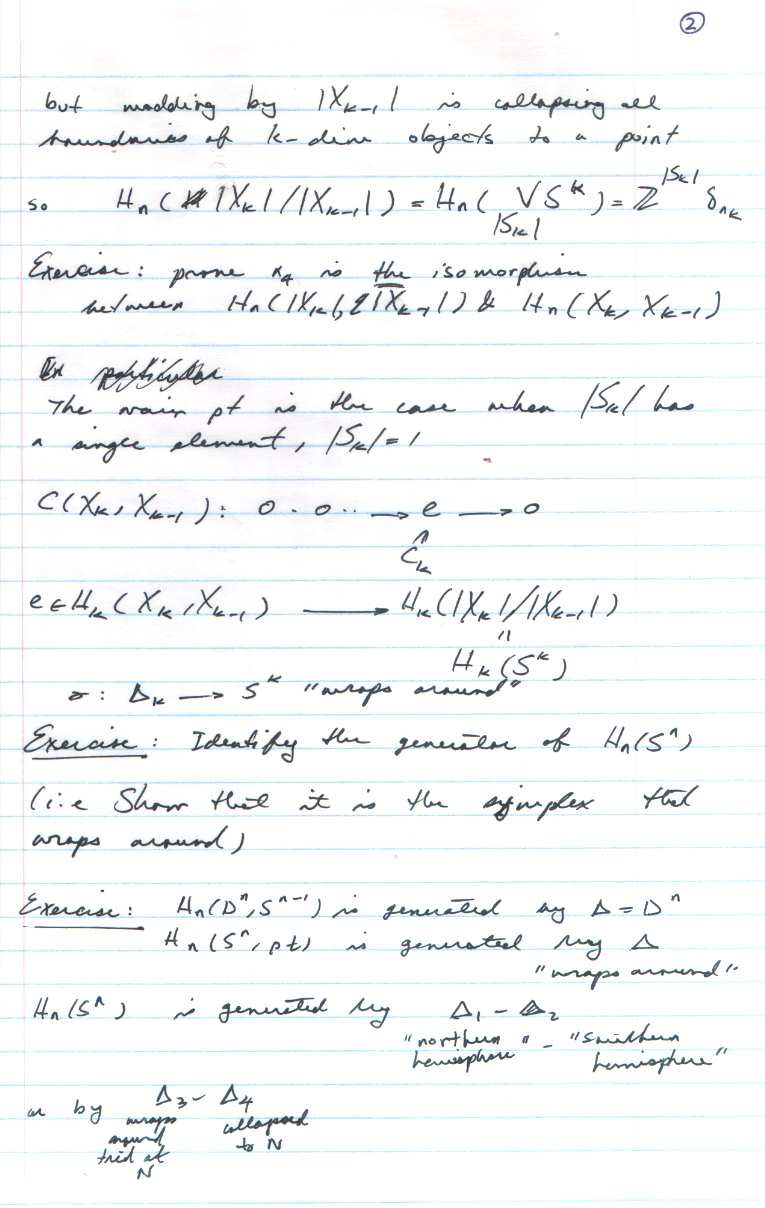 ②
but modding by |X_{k-1}| is collapsing all
boundaries of k-dim objects to a point
so H_n(|X_k|/|X_{k-1}|) = H_n(⋁_{|S_k|} S^k) = ℤ^{|S_k|} δ_{nk}
Exercise: prove κ_4 is the isomorphism
between H_n(|X_k|, |X_{k-1}|) & H_n(X_k, X_{k-1})
The main pt is the case when |S_k| has
a single element, |S_k| = 1
C(X_k, X_{k-1}): 0 . 0 .. → e → 0
C_k
e ∈ H_k(X_k, X_{k-1}) → H_k(|X_k|/|X_{k-1}|)
=
H_k(S^k)
σ: Δ_k → S^k "wraps around"
Exercise: Identify the generator of H_n(S^n)
(i.e Show that it is the symplex that
wraps around)
Exercise: H_n(D^n, S^{n-1}) is generated by Δ = D^n
H_n(S^n, pt) is generated by Δ
"wraps around"
H_n(S^n) is generated by Δ_1 - Δ_2
"northern hemisphere" - "southern hemisphere"
or by Δ_3 - Δ_4
wraps collapsed
around to N
tied at
N